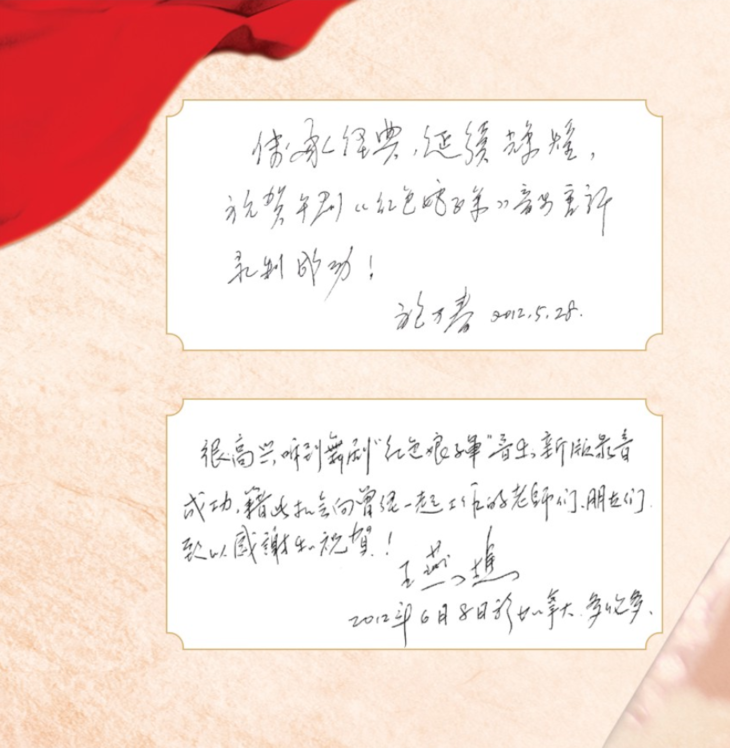 传承经典，延续辉煌，
祝贺年剧《红色娘子军》音乐重新
录制成功！
施万春 2012.5.28.
很高兴听到舞剧“红色娘子軍”音乐新版录音
成功，藉此机会向曾经一起工作的老師们、朋友们
致以感謝和祝賀！
王燕樵
2012年6月8日於加拿大.多伦多.